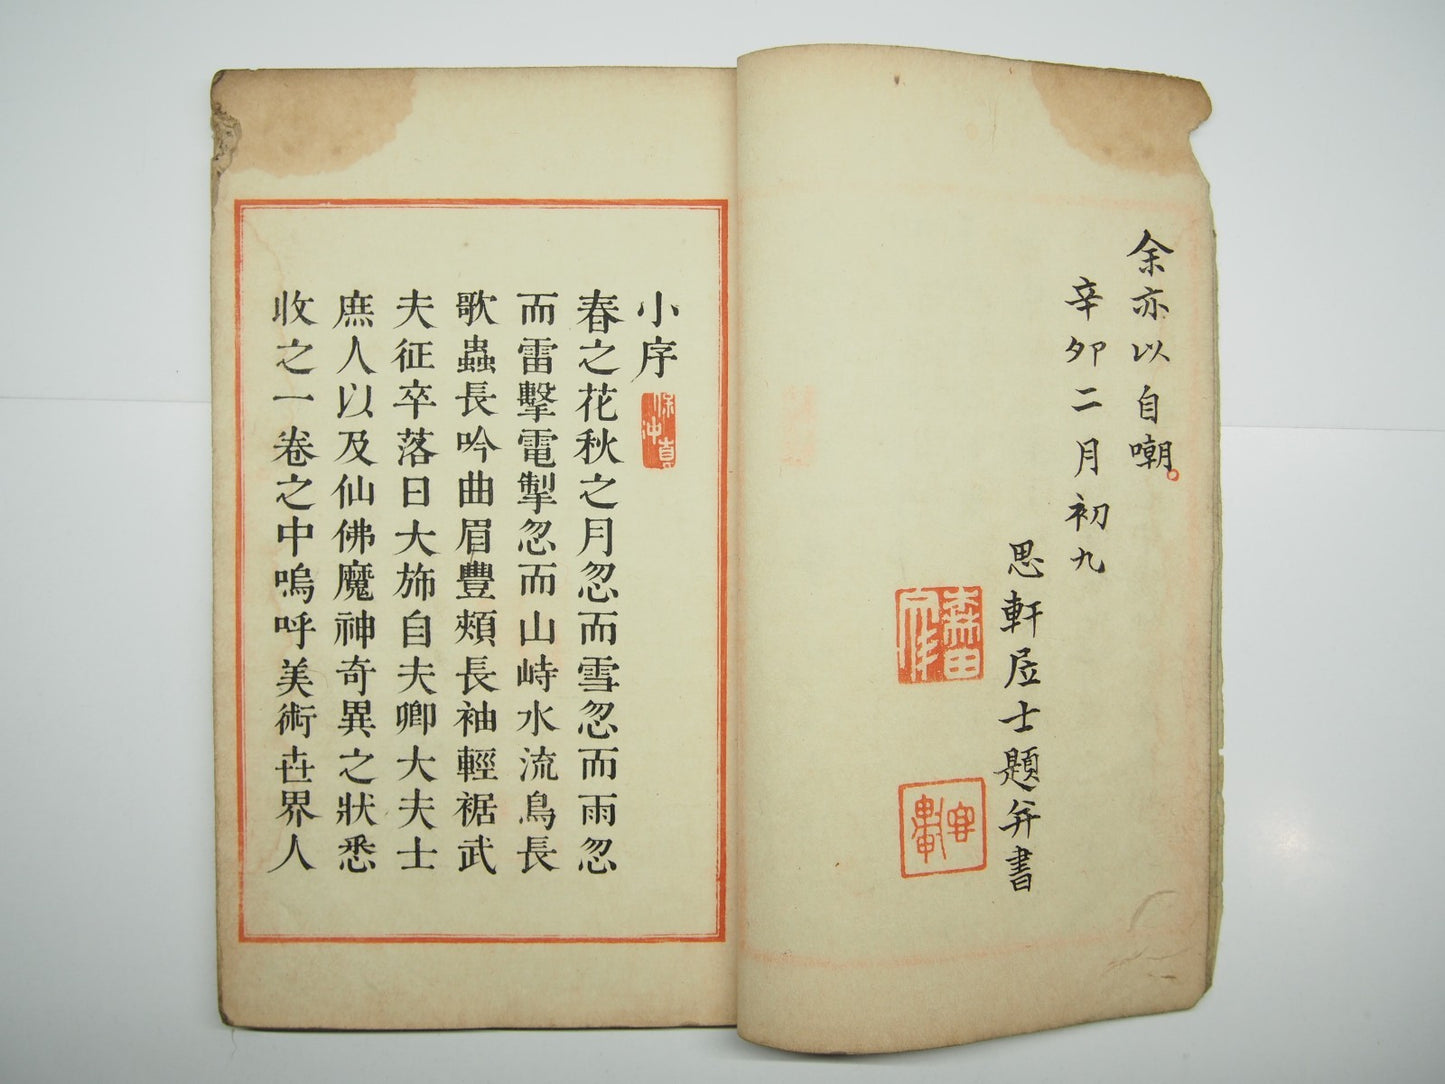 余亦以自嘲。
辛卯二月初九
思軒居士題并書
森田
小序
春之花秋之月忽而雪忽而雨忽
而雷擊電掣忽而山峙水流鳥長
歌蟲長吟曲眉豐頰長袖輕裾武
夫征卒落日大旆自夫卿大夫士
庶人以及仙佛魔神奇異之狀悉
收之一卷之中嗚呼美術世界人